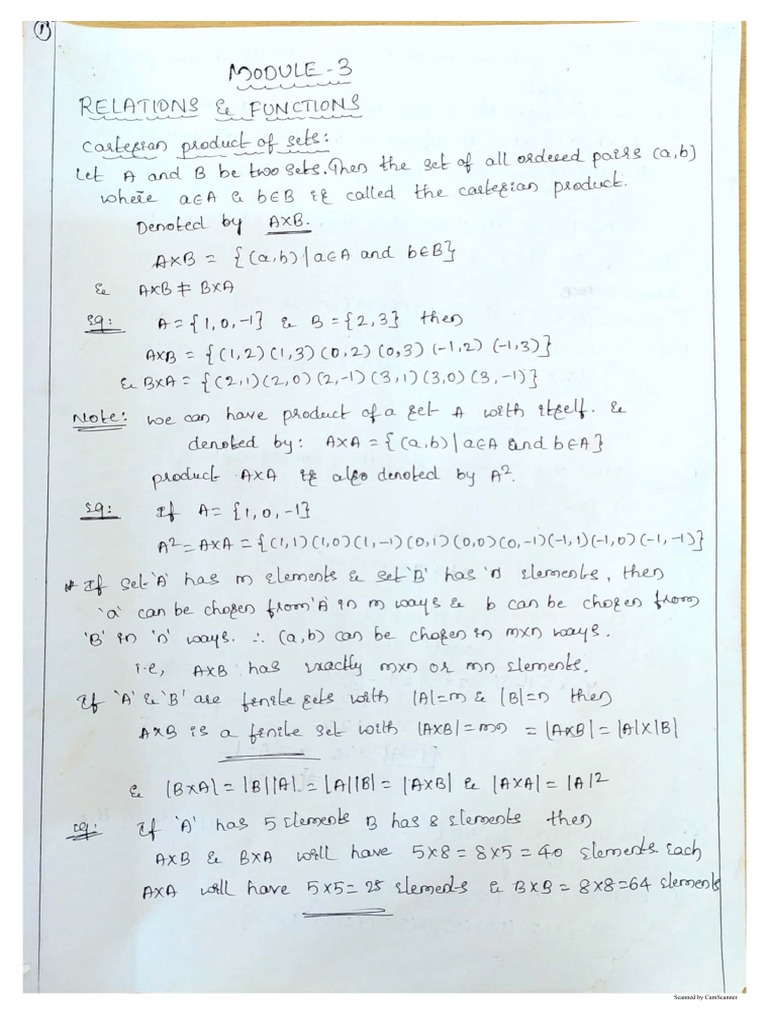 1
MODULE - 3
RELATIONS & FUNCTIONS
Cartesian product of sets:
Let A and B be two sets. Then the set of all ordered pairs (a,b)
where a∈A & b∈B is called the cartesian product.
Denoted by A×B.
A×B = {(a,b) | a∈A and b∈B}
& A×B ≠ B×A
eg: A = {1, 0, -1} & B = {2, 3} then
A×B = {(1,2) (1,3) (0,2) (0,3) (-1,2) (-1,3)}
& B×A = {(2,1) (2,0) (2,-1) (3,1) (3,0) (3,-1)}
Note: we can have product of a set A with itself. &
denoted by: A×A = {(a,b) | a∈A and b∈A}
product A×A is also denoted by A².
eg: If A = {1, 0, -1}
A² = A×A = {(1,1) (1,0) (1,-1) (0,1) (0,0) (0,-1) (-1,1) (-1,0) (-1,-1)}
* If set 'A' has m elements & set 'B' has 'n' elements, then
'a' can be chosen from 'A' in m ways & b can be chosen from
'B' in 'n' ways. ∴ (a,b) can be chosen in m×n ways.
i.e, A×B has exactly m×n or mn elements.
If 'A' & 'B' are finite sets with |A|=m & |B|=n then
A×B is a finite set with |A×B| = mn = |A×B| = |A|×|B|
& |B×A| = |B||A|. = |A||B| = |A×B| & |A×A| = |A|²
eg: If 'A' has 5 elements B has 8 elements then
A×B & B×A will have 5×8 = 8×5 = 40 elements. Each
A×A will have 5×5 = 25 elements & B×B = 8×8 = 64 elements
Scanned by CamScanner